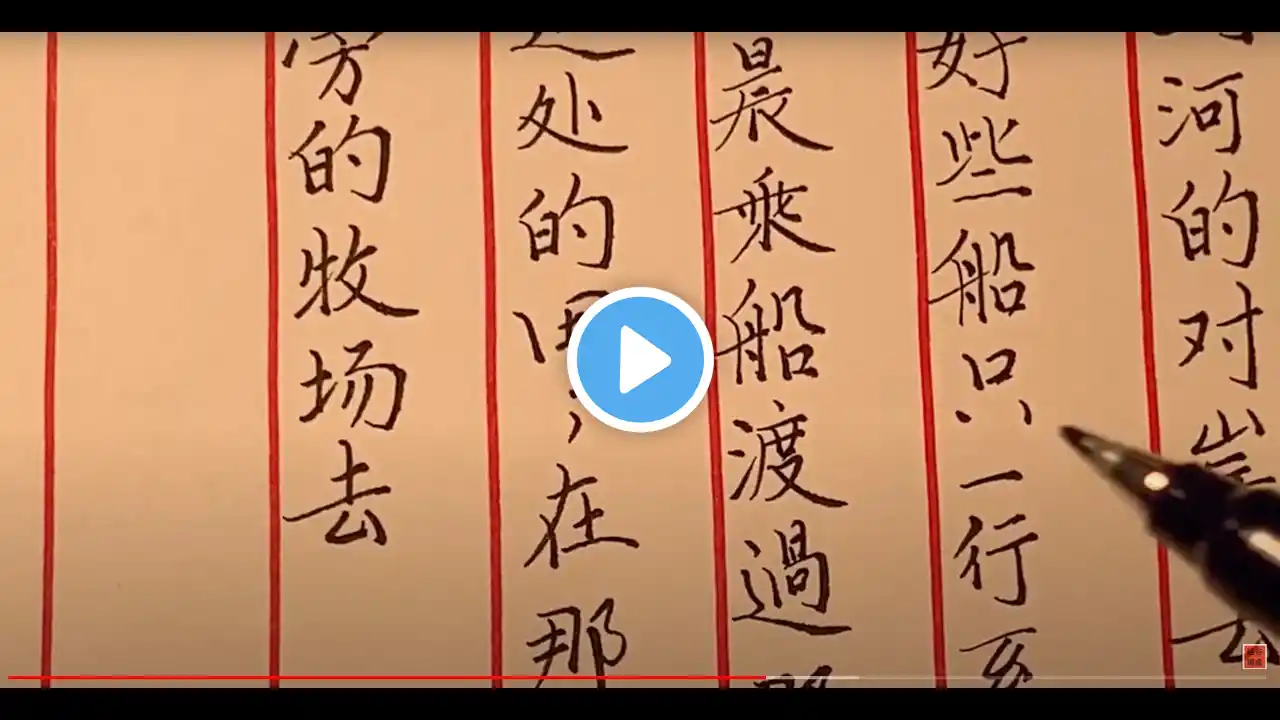 河的对岸去
好些船只一行系
晨乘船渡過
处的田；在那
旁的牧场去